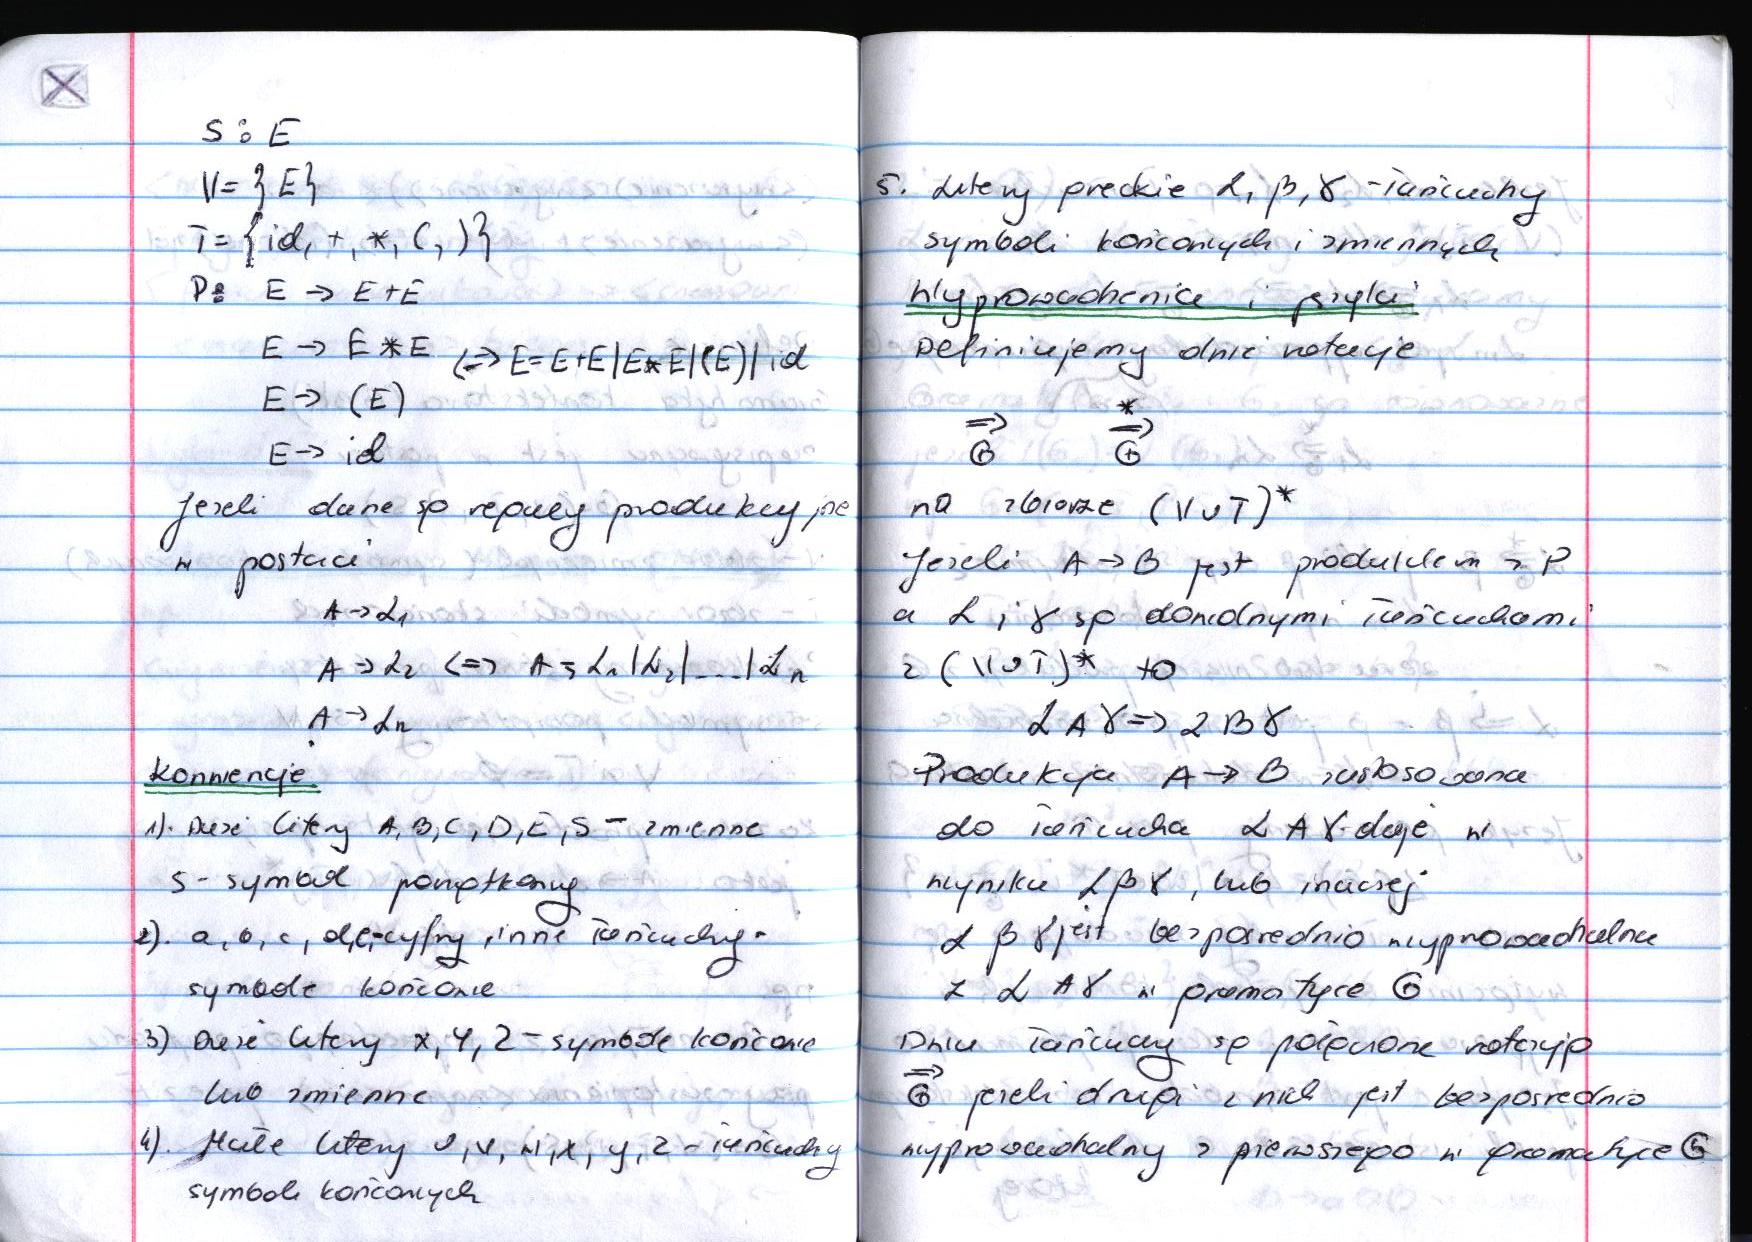 S: E
V = {E}
T = {id, +, *, (, )}
P: E → E+E
E → E*E <=> E = E+E|E*E|(E)|id
E → (E)
E → id
Jeżeli dane są reguły produkcyjne
w postaci
A → α₁
A → α₂ <=> A → α₁|α₂|....|αₙ
A → αₙ
Konwencje
1). Duże litery A, B, C, D, E, S – zmienne
S – symbol początkowy
2). a, b, c, d, e, – cyfry, inne łańcuchy –
symbole końcowe
3) Duże litery X, Y, Z – symbole końcowe
lub zmienne
4). Małe litery u, v, w, x, y, z – łańcuchy
symboli końcowych
5. Litery greckie α, β, γ – łańcuchy
symboli końcowych i zmiennych
Wyprowadzenia i języki
Definiujemy dwie notacje
⇒ *⇒
G G
na zbiorze (V∪T)*
Jeżeli A → B jest produkcją z P
a α i γ są dowolnymi łańcuchami
z (V∪T)* to
α A γ => α B γ
Produkcja A → B zastosowana
do łańcucha α A γ daje w
wyniku α β γ, lub inaczej
α β γ jest bezpośrednio wyprowadzalna
z α A γ w gramatyce G
Dwa łańcuchy są połączone notacją
⇒
G jeżeli drugi z nich jest bezpośrednio
wyprowadzalny z pierwszego w gramatyce G